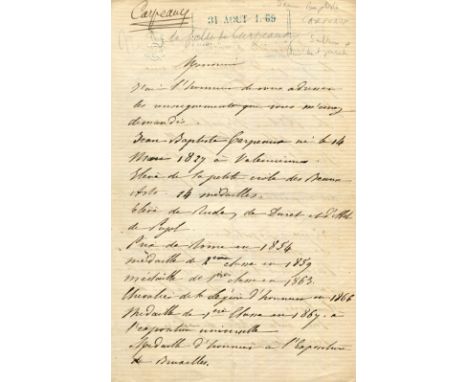 Carpeaux
31 AOUT 1869
Jean Baptiste
Carpeaux
Monsieur
J'ai l'honneur de vous adresser
les renseignements que vous m'avez
demandés.
Jean Baptiste Carpeaux né le 14
Mars 1827 à Valenciennes.
Elève de la petite école des Beaux
Arts 14 médailles.
Elève de Rude, de Duret et d'Abel
de Pujol
Prix de Rome en 1854
médaille de 2ème classe en 1859
médaille de 1ère classe en 1863.
Chevalier de la Légion d'honneur en 1866
Médaille de 1ère Classe en 1867 à
l'exposition universelle
Médaille d'honneur à l'Exposition
de Bruxelles.